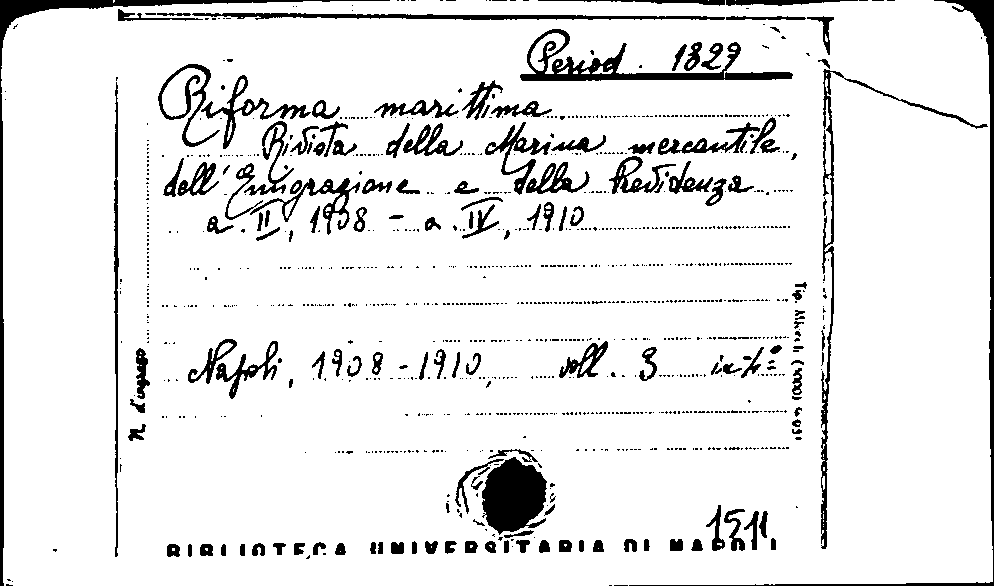 Period. 1829
Riforma marittima.
Rivista della Marina mercantile,
dell'Emigrazione e della Previdenza
a. II, 1908 - a. IV, 1910.
Napoli, 1908-1910, voll. 3 in-4°
N. d'ingresso
Tip.
1511
BIBLIOTECA UNIVERSITARIA DI NAPOLI